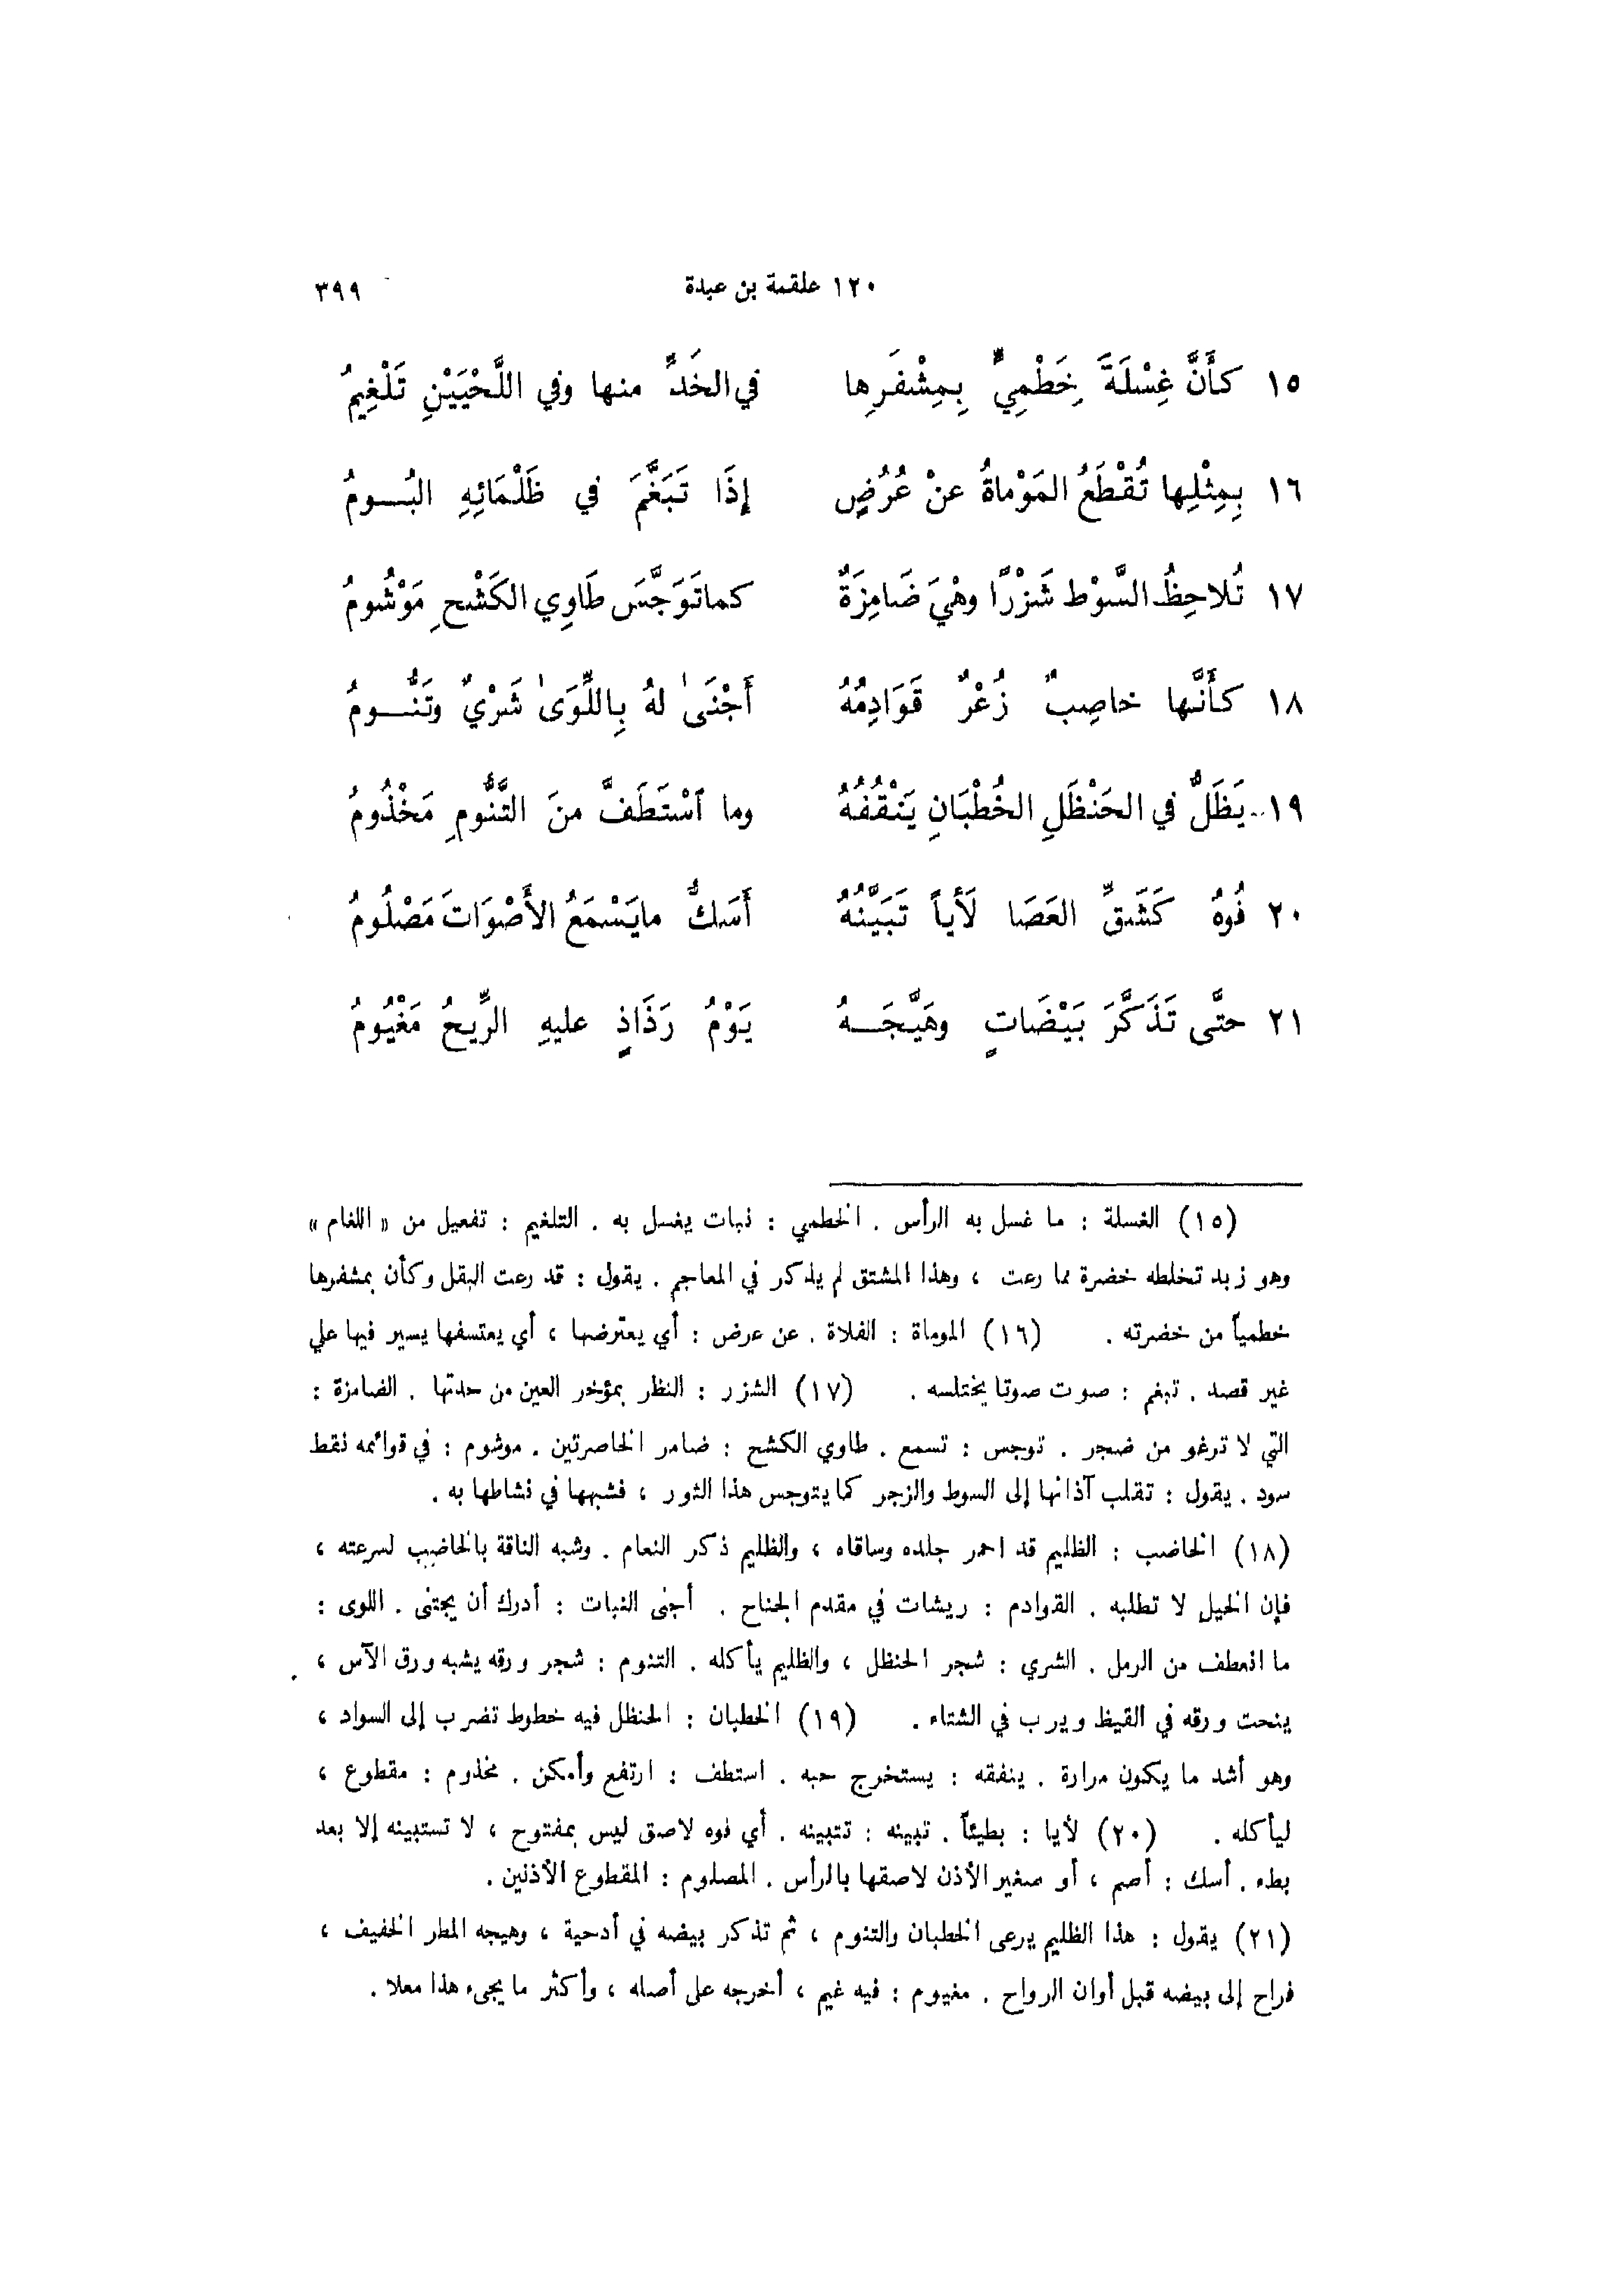 ١٢٠ علقمة بن عبدة ٣٩٩
١٥ كَأَنَّ غِسْلَةَ خِطْمِيٍّ بِمِشْفَرِها في الخَدِّ منها وفي اللَّحْيَيْنِ تَلْغِيمُ
١٦ بِمِثْلِها تُقْطَعُ المَوْماةُ عنْ عُرُضٍ إِذَا تَبَغَّمَ في ظَلْمَائِهِ البُومُ
١٧ تُلاحِظُ السَّوْط شَزْرًا وهْيَ ضَامِزَةٌ كما تَوَجَّسَ طَاوِي الكَشْحِ مَوْشُومُ
١٨ كَأَنَّها خاصِبٌ زُعْرٌ قَوَادِمُهُ أَجْنَىٰ لهُ بِاللِّوَىٰ شَرْيٌ وتَنُّومُ
١٩ يَظَلُّ في الحَنْظَلِ الخُطْبَانِ يَنْقُفُهُ وما ٱسْتَطَفَّ منَ التَّنُّومِ مَخْذُومُ
٢٠ فُوهُ كَشَقِّ العَصَا لَأْياً تَبَيَّنُهُ أَسَكُّ ما يَسْمَعُ الأَصْوَاتَ مَصْلُومُ
٢١ حتَّى تَذَكَّرَ بَيْضَاتٍ وهَيَّجَهُ يَوْمُ رَذَاذٍ عليهِ الرِّيحُ مَغْيُومُ
(١٥) الغسلة : ما غسل به الرأس . الخطمي : نبات يغسل به . التلغيم : تفعيل من « اللغام »
وهو زبد تخلطه خضرة مما رعت ، وهذا المشتق لم يذكر في المعاجم . يقول : قد رعت البقل وكأن بمشفرها
خطمياً من خضرته . (١٦) الموماة : الفلاة . عن عرض : أي يعترضها ، أي يعتسفها يسير فيها على
غير قصد . تبغم : صوت صوتا يختلسه . (١٧) الشزر : النظر بمؤخر العين من حدتها . الضامزة :
التي لا ترغو من ضجر . توجس : تسمع . طاوي الكشح : ضامر الخاصرتين . موشوم : في قوائمه نقط
سود . يقول : تقلب آذانها إلى السوط والزجر كما يتوجس هذا الثور ، فشبهها في نشاطها به .
(١٨) الخاضب : الظليم قد احمر جلده وساقاه ، والظليم ذكر النعام . وشبه الناقة بالخاضب لسرعته ،
فإن الخيل لا تطلبه . القوادم : ريشات في مقدم الجناح . أجنى النبات : أدرك أن يجتنى . اللوى :
ما انعطف من الرمل . الشري : شجر الحنظل ، والظليم يأكله . التنوم : شجر ورقه يشبه ورق الآس ،
ينحت ورقه في القيظ ويرب في الشتاء . (١٩) الخطبان : الحنظل فيه خطوط تضرب إلى السواد ،
وهو أشد ما يكون مرارة . ينفقه : يستخرج حبه . استطف : ارتفع وأمكن . مخذوم : مقطوع ،
ليأكله . (٢٠) لأيا : بطيئاً . تبينه : تتبينه . أي فوه لاصق ليس بمفتوح ، لا تستبينه إلا بعد
بطء . أسك : أصم ، أو صغير الأذن لاصقها بالرأس . المصلوم : المقطوع الأذنين .
(٢١) يقول : هذا الظليم يرعى الخطبان والتنوم ، ثم تذكر بيضه في أدحية ، وهيجه المطر الخفيف ،
فراح إلى بيضه قبل أوان الرواح . مغيوم : فيه غيم ، أخرجه على أصله ، وأكثر ما يجيء هذا معلا .